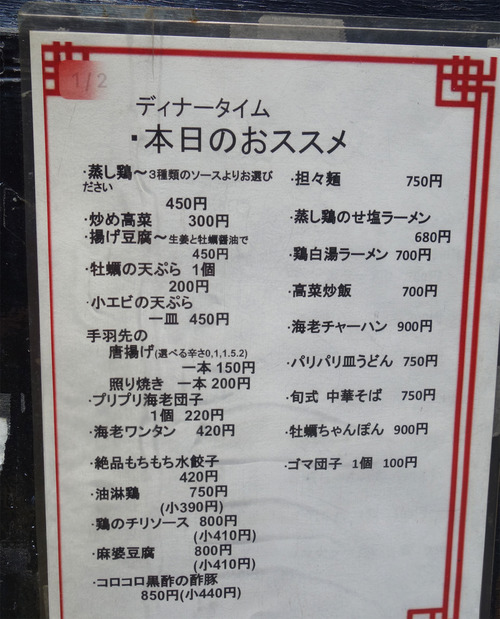 1/2
ディナータイム
・本日のおススメ
・蒸し鶏～3種類のソースよりお選び
ださい
450円
・炒め高菜 300円
・揚げ豆腐～生姜と牡蠣醤油で
450円
・牡蠣の天ぷら 1個
200円
・小エビの天ぷら
一皿 450円
手羽先の
唐揚げ(選べる辛さ0,1,1.5.2)
一本 150円
照り焼き 一本 200円
・プリプリ海老団子
1個 220円
・海老ワンタン 420円
・絶品もちもち水餃子
420円
・油淋鶏 750円
(小390円)
・鶏のチリソース 800円
(小410円)
・麻婆豆腐 800円
(小410円)
・コロコロ黒酢の酢豚
850円(小440円)
・担々麺 750円
・蒸し鶏のせ塩ラーメン
680円
・鶏白湯ラーメン 700円
・高菜炒飯 700円
・海老チャーハン 900円
・パリパリ皿うどん 750円
・旬式 中華そば 750円
・牡蠣ちゃんぽん 900円
・ゴマ団子 1個 100円